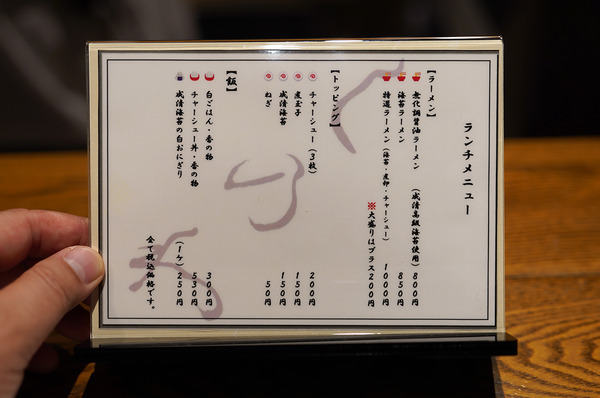 ランチメニュー
【ラーメン】
無化調醤油ラーメン（成清高級海苔使用）800円
海苔ラーメン 850円
特選ラーメン（海苔・煮卵・チャーシュー）1000円
※大盛りはプラス200円
【トッピング】
チャーシュー（3枚）200円
煮玉子 150円
成清海苔 150円
ねぎ 50円
【飯】
白ごはん・香の物 300円
チャーシュー丼・香の物 530円
成清海苔の白おにぎり（1ケ）250円
全て税込価格です。